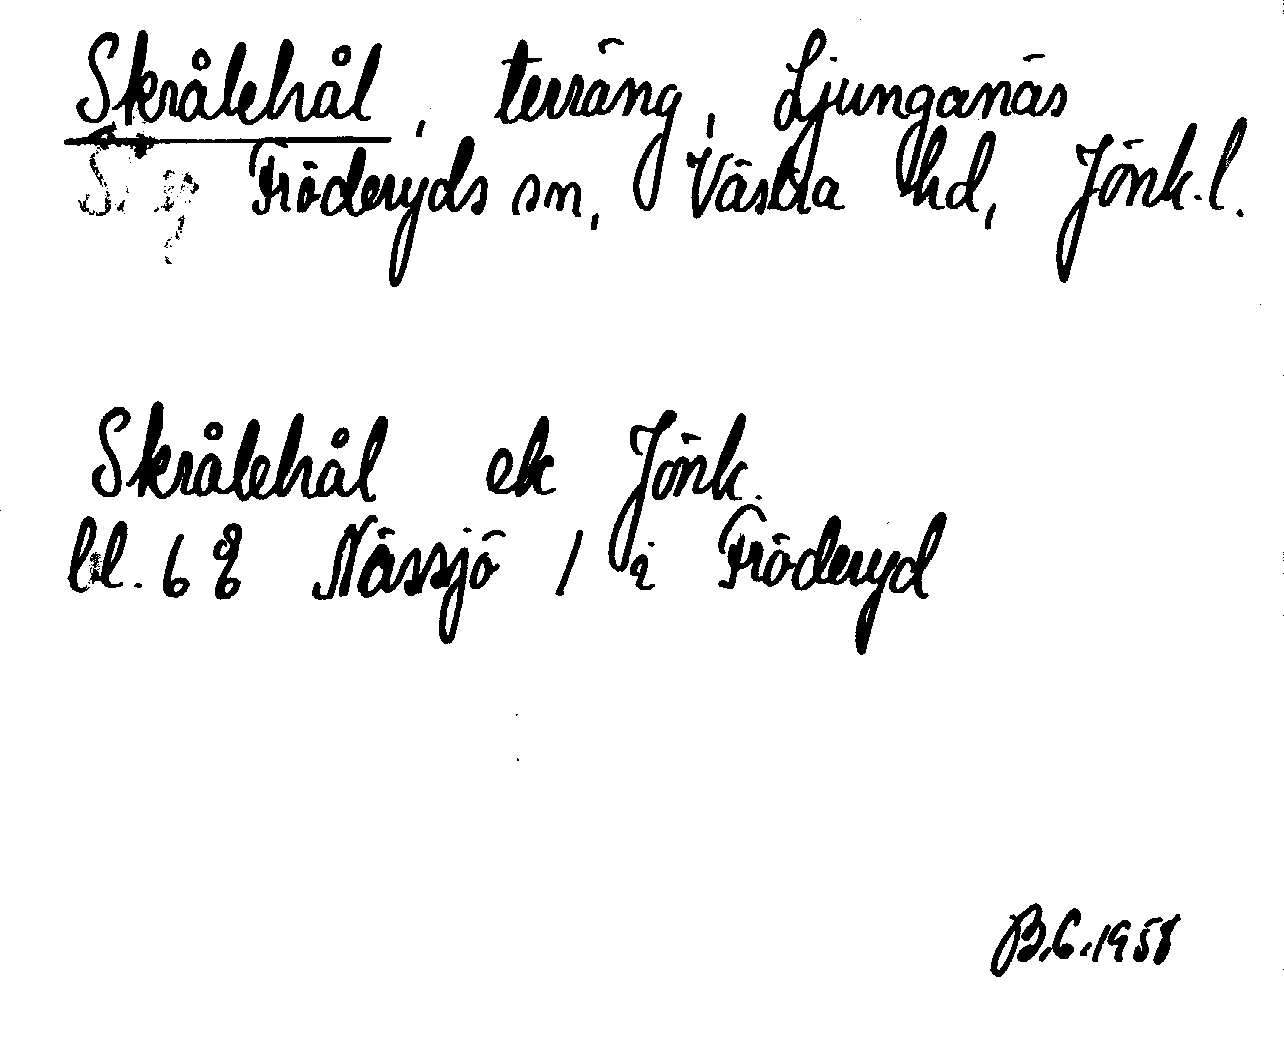 Skrålehål, terräng, Ljunganäs
Fröderyds sn, Västra hd, Jönk.l.
Skrålehål ek Jönk.
bl. 68 Nässjö / i Fröderyd
B.C. 1958